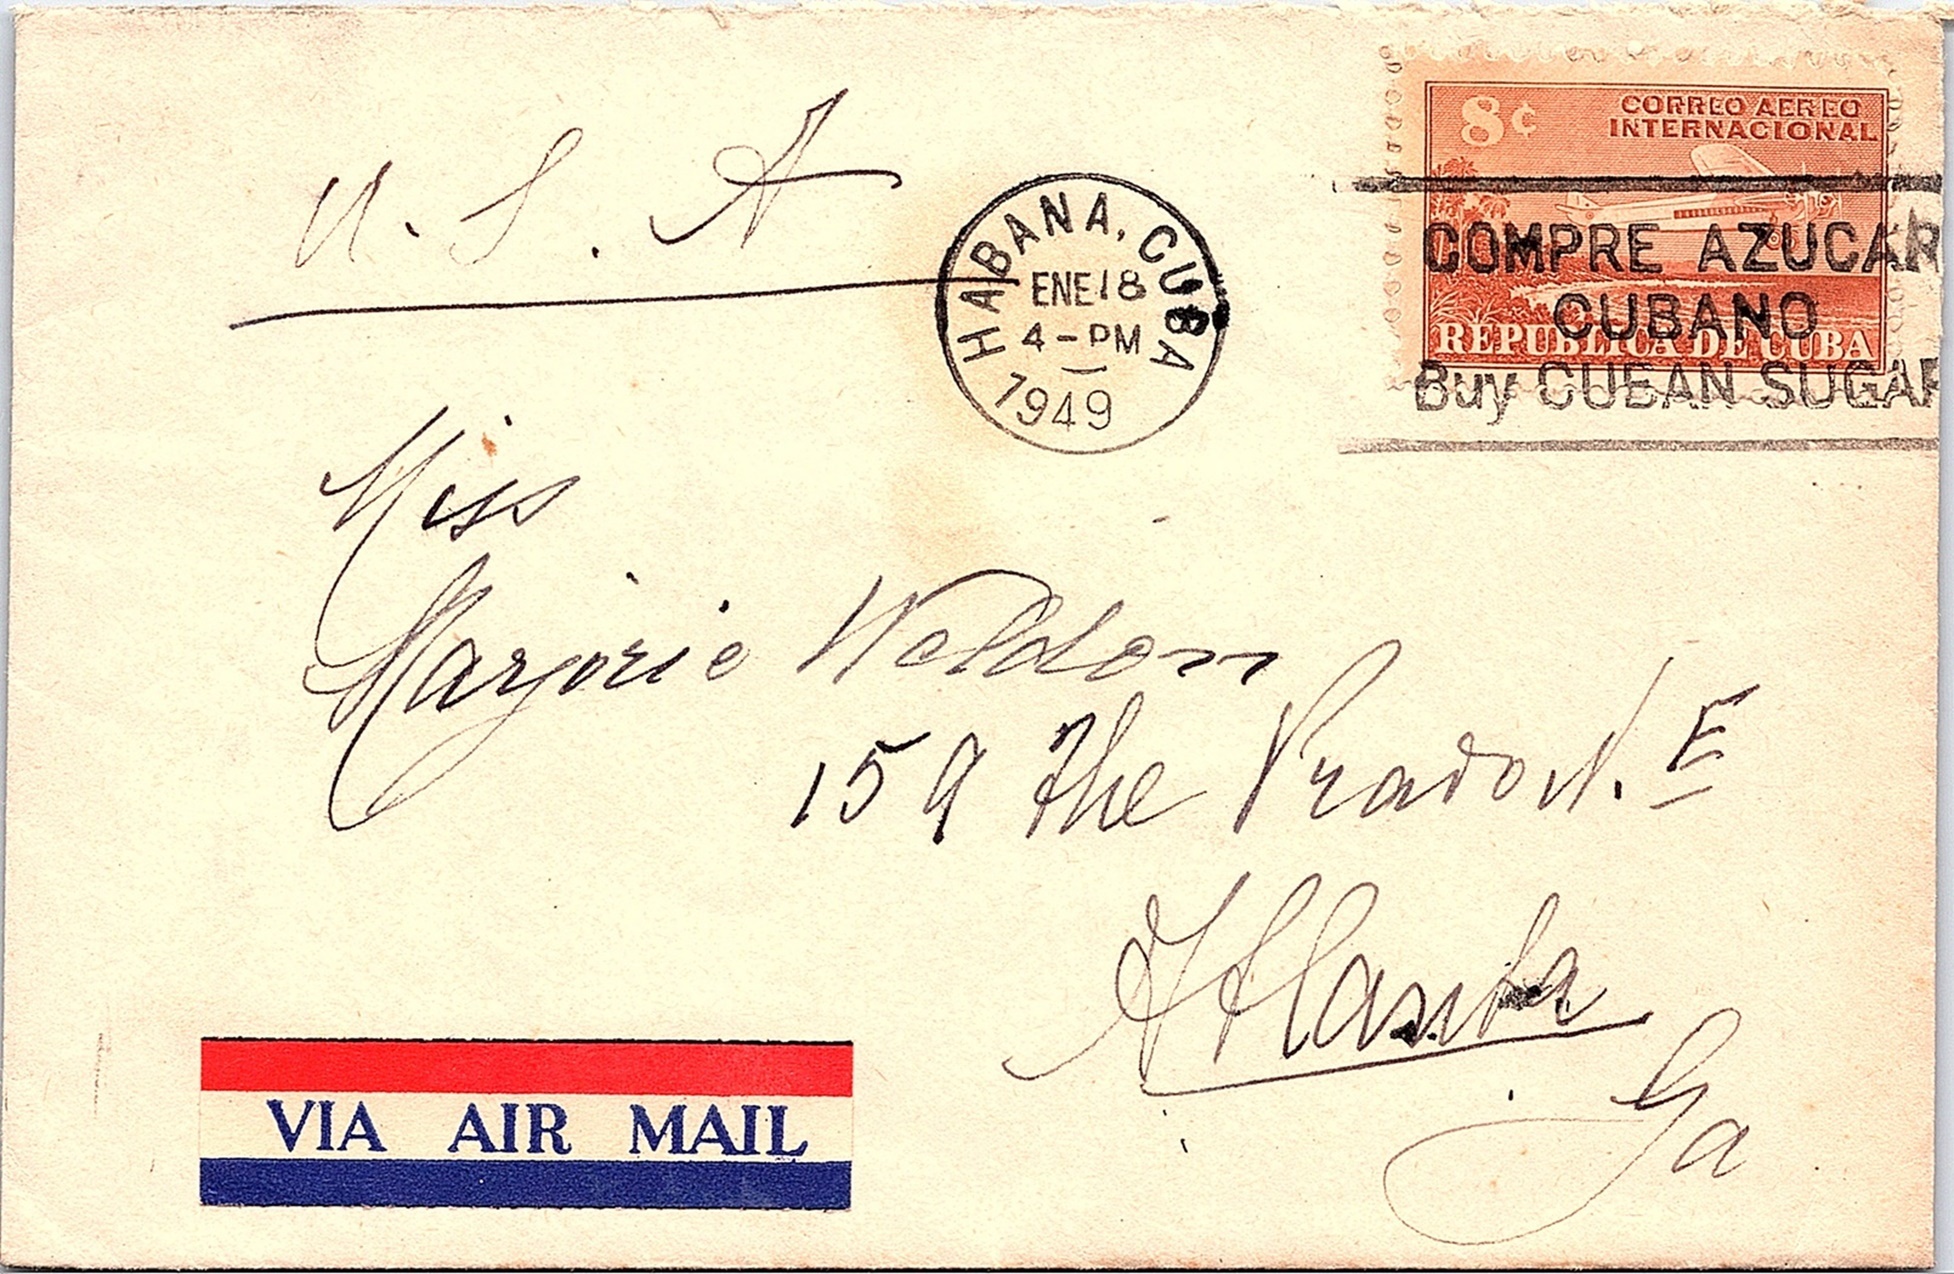 U. S. A
8¢
CORREO AEREO
INTERNACIONAL
REPUBLICA DE CUBA
HABANA, CUBA
ENE 18
4-PM
1949
COMPRE AZUCAR
CUBANO
Buy CUBAN SUGAR
Miss
Marjorie Weldon
159 The Prado N. E
Atlanta
Ga
VIA AIR MAIL